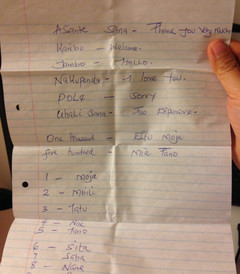 Asante Sana - Thank you Very Much
Karibu - Welcome.
Jambo - Hallo.
Nakupenda - I love You.
POLE - Sorry
Ghali Sana - Too Expensive.
One Thousand - Elfu Moja
five hundred - Mia Tano
1 - Moja
2 - Mbili
3 - Tatu
4 - Nne
5 - Tano
6 - Sita
7 - Saba
8 - Nane